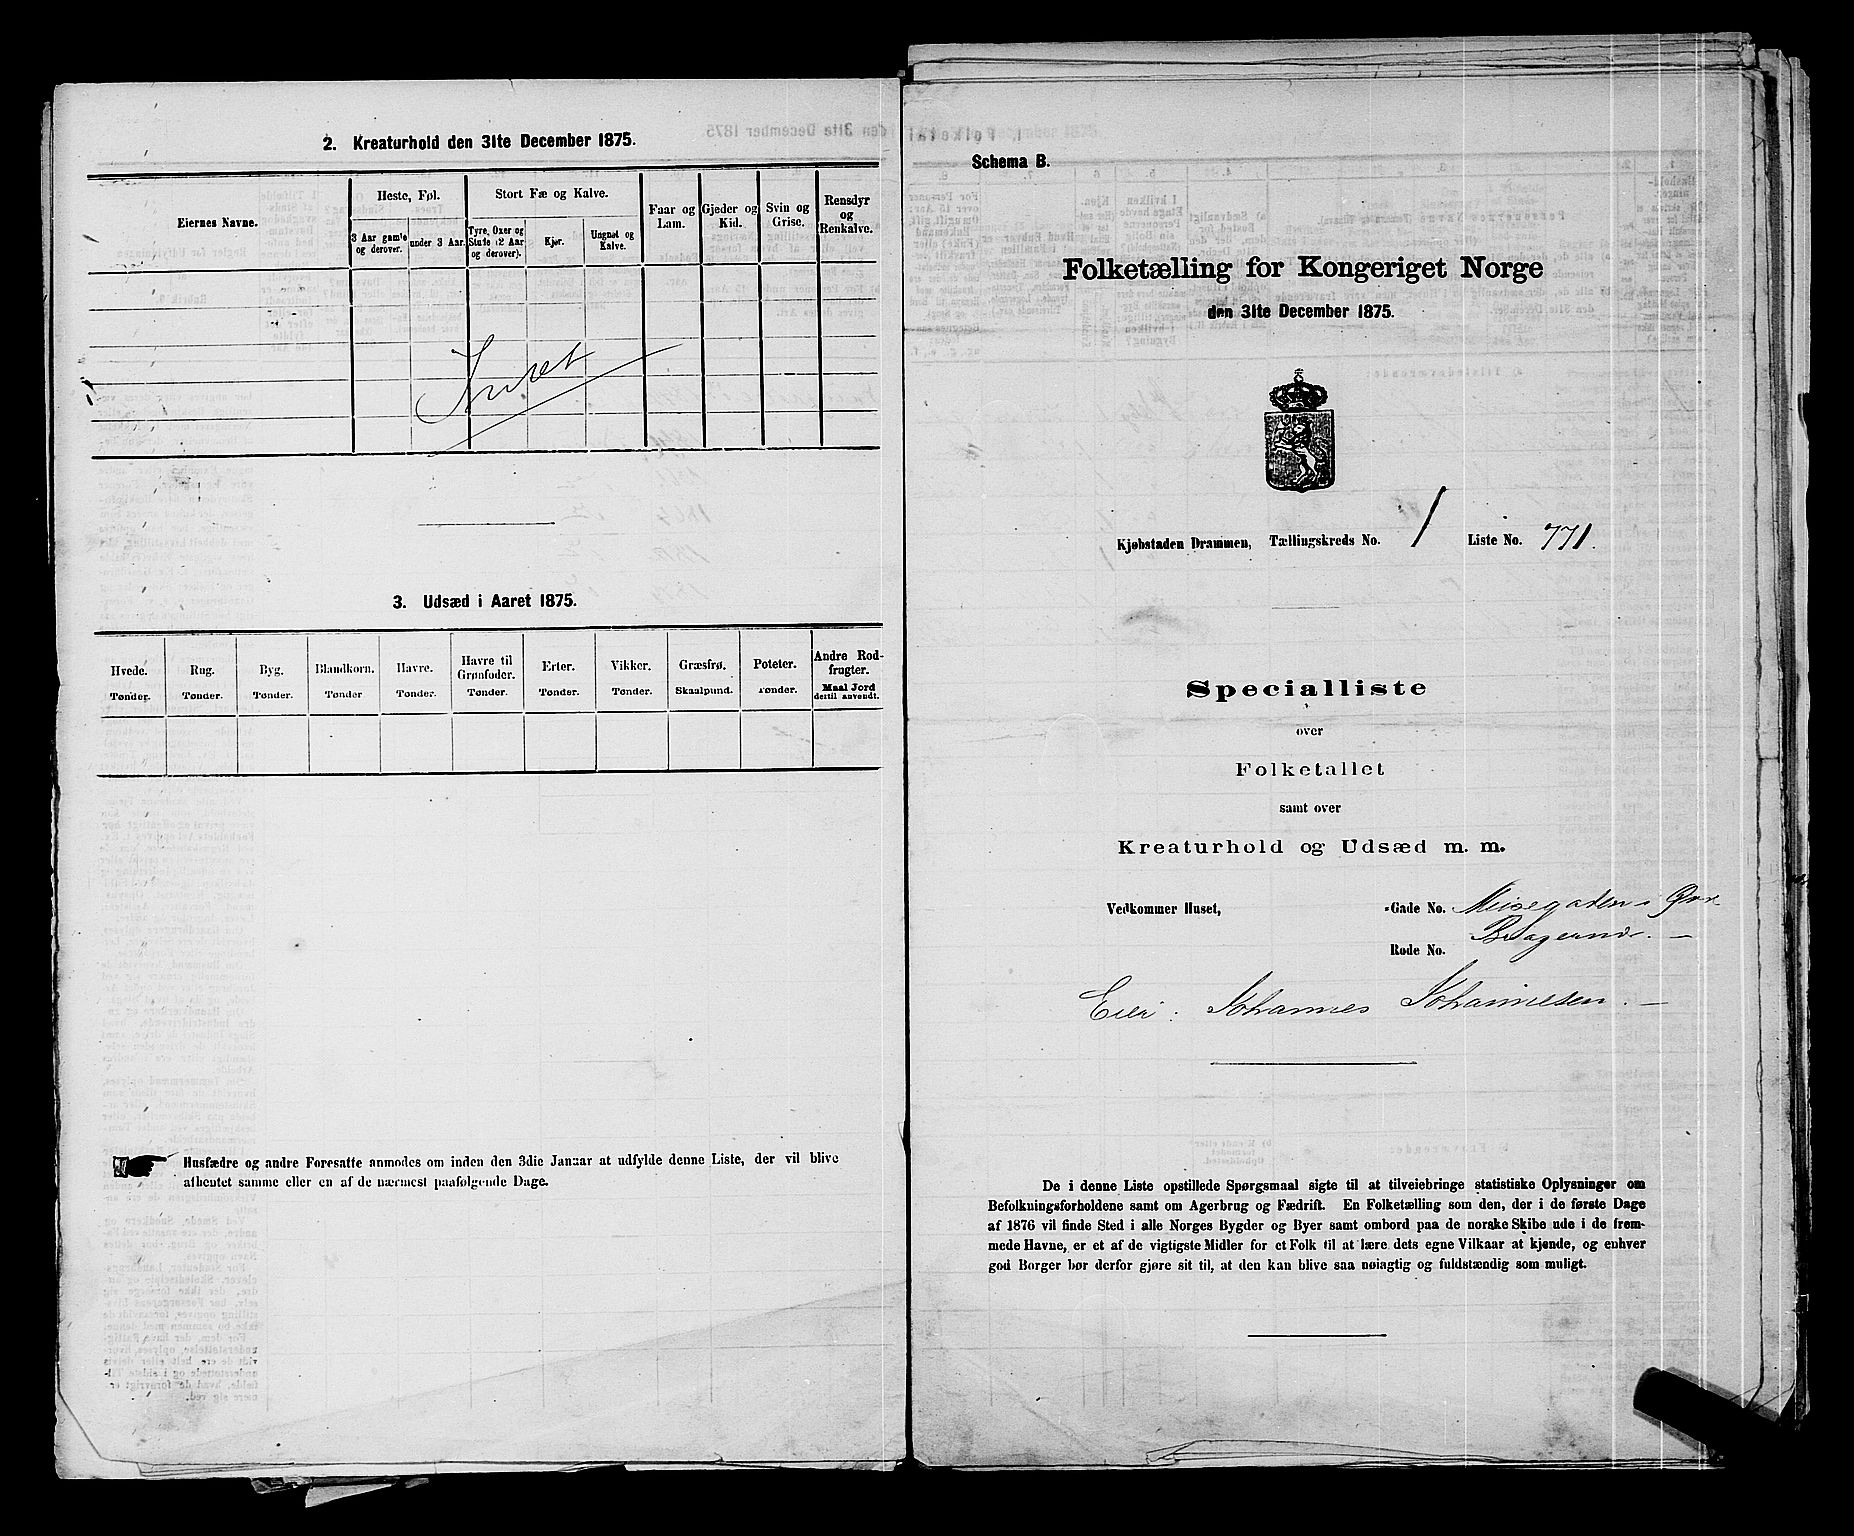 2. Kreaturhold den 31te December 1875.
Eiernes Navne.
Heste, Føl.
3 Aar gamle og derover.
under 3 Aar.
Stort Fæ og Kalve.
Tyre, Oxer og Stude (2 Aar og derover).
Kjør.
Ungnøt og Kalve.
Faar og Lam.
Gjeder og Kid.
Svin og Grise.
Rensdyr og Renkalve.
Intet
3. Udsæd i Aaret 1875.
Hvede. Rug. Byg. Blandkorn. Havre. Havre til Grønfoder. Erter. Vikker. Græsfrø. Poteter. Andre Rodfrugter.
Tønder. Tønder. Tønder. Tønder Tønder. Tønder. Tønder. Tønder. Skaalpund. Tønder. Maal Jord dertil anvendt.
Husfædre og andre Foresatte anmodes om inden den 3die Januar at udfylde denne Liste, der vil blive
afhentet samme eller en af de nærmest paafølgende Dage.
Schema B.
Folketælling for Kongeriget Norge
den 31te December 1875.
Kjøbstaden Drammen, Tællingskreds No. 1 Liste No. 771.
Specialliste
over
Folketallet
samt over
Kreaturhold og Udsæd m. m.
Vedkommer Huset, -Gade No. Meisegaden i Øvr
Bragernes. —
Rode No.
Eier: Johannes Johannesen. —
De i denne Liste opstillede Spørgsmaal sigte til at tilveiebringe statistiske Oplysninger om
Befolkningsforholdene samt om Agerbrug og Fædrift. En Folketælling som den, der i de første Dage
af 1876 vil finde Sted i alle Norges Bygder og Byer samt ombord paa de norske Skibe ude i de frem-
mede Havne, er et af de vigtigste Midler for et Folk til at lære dets egne Vilkaar at kjende, og enhver
god Borger bør derfor gjøre sit til, at den kan blive saa nøiagtig og fuldstændig som muligt.